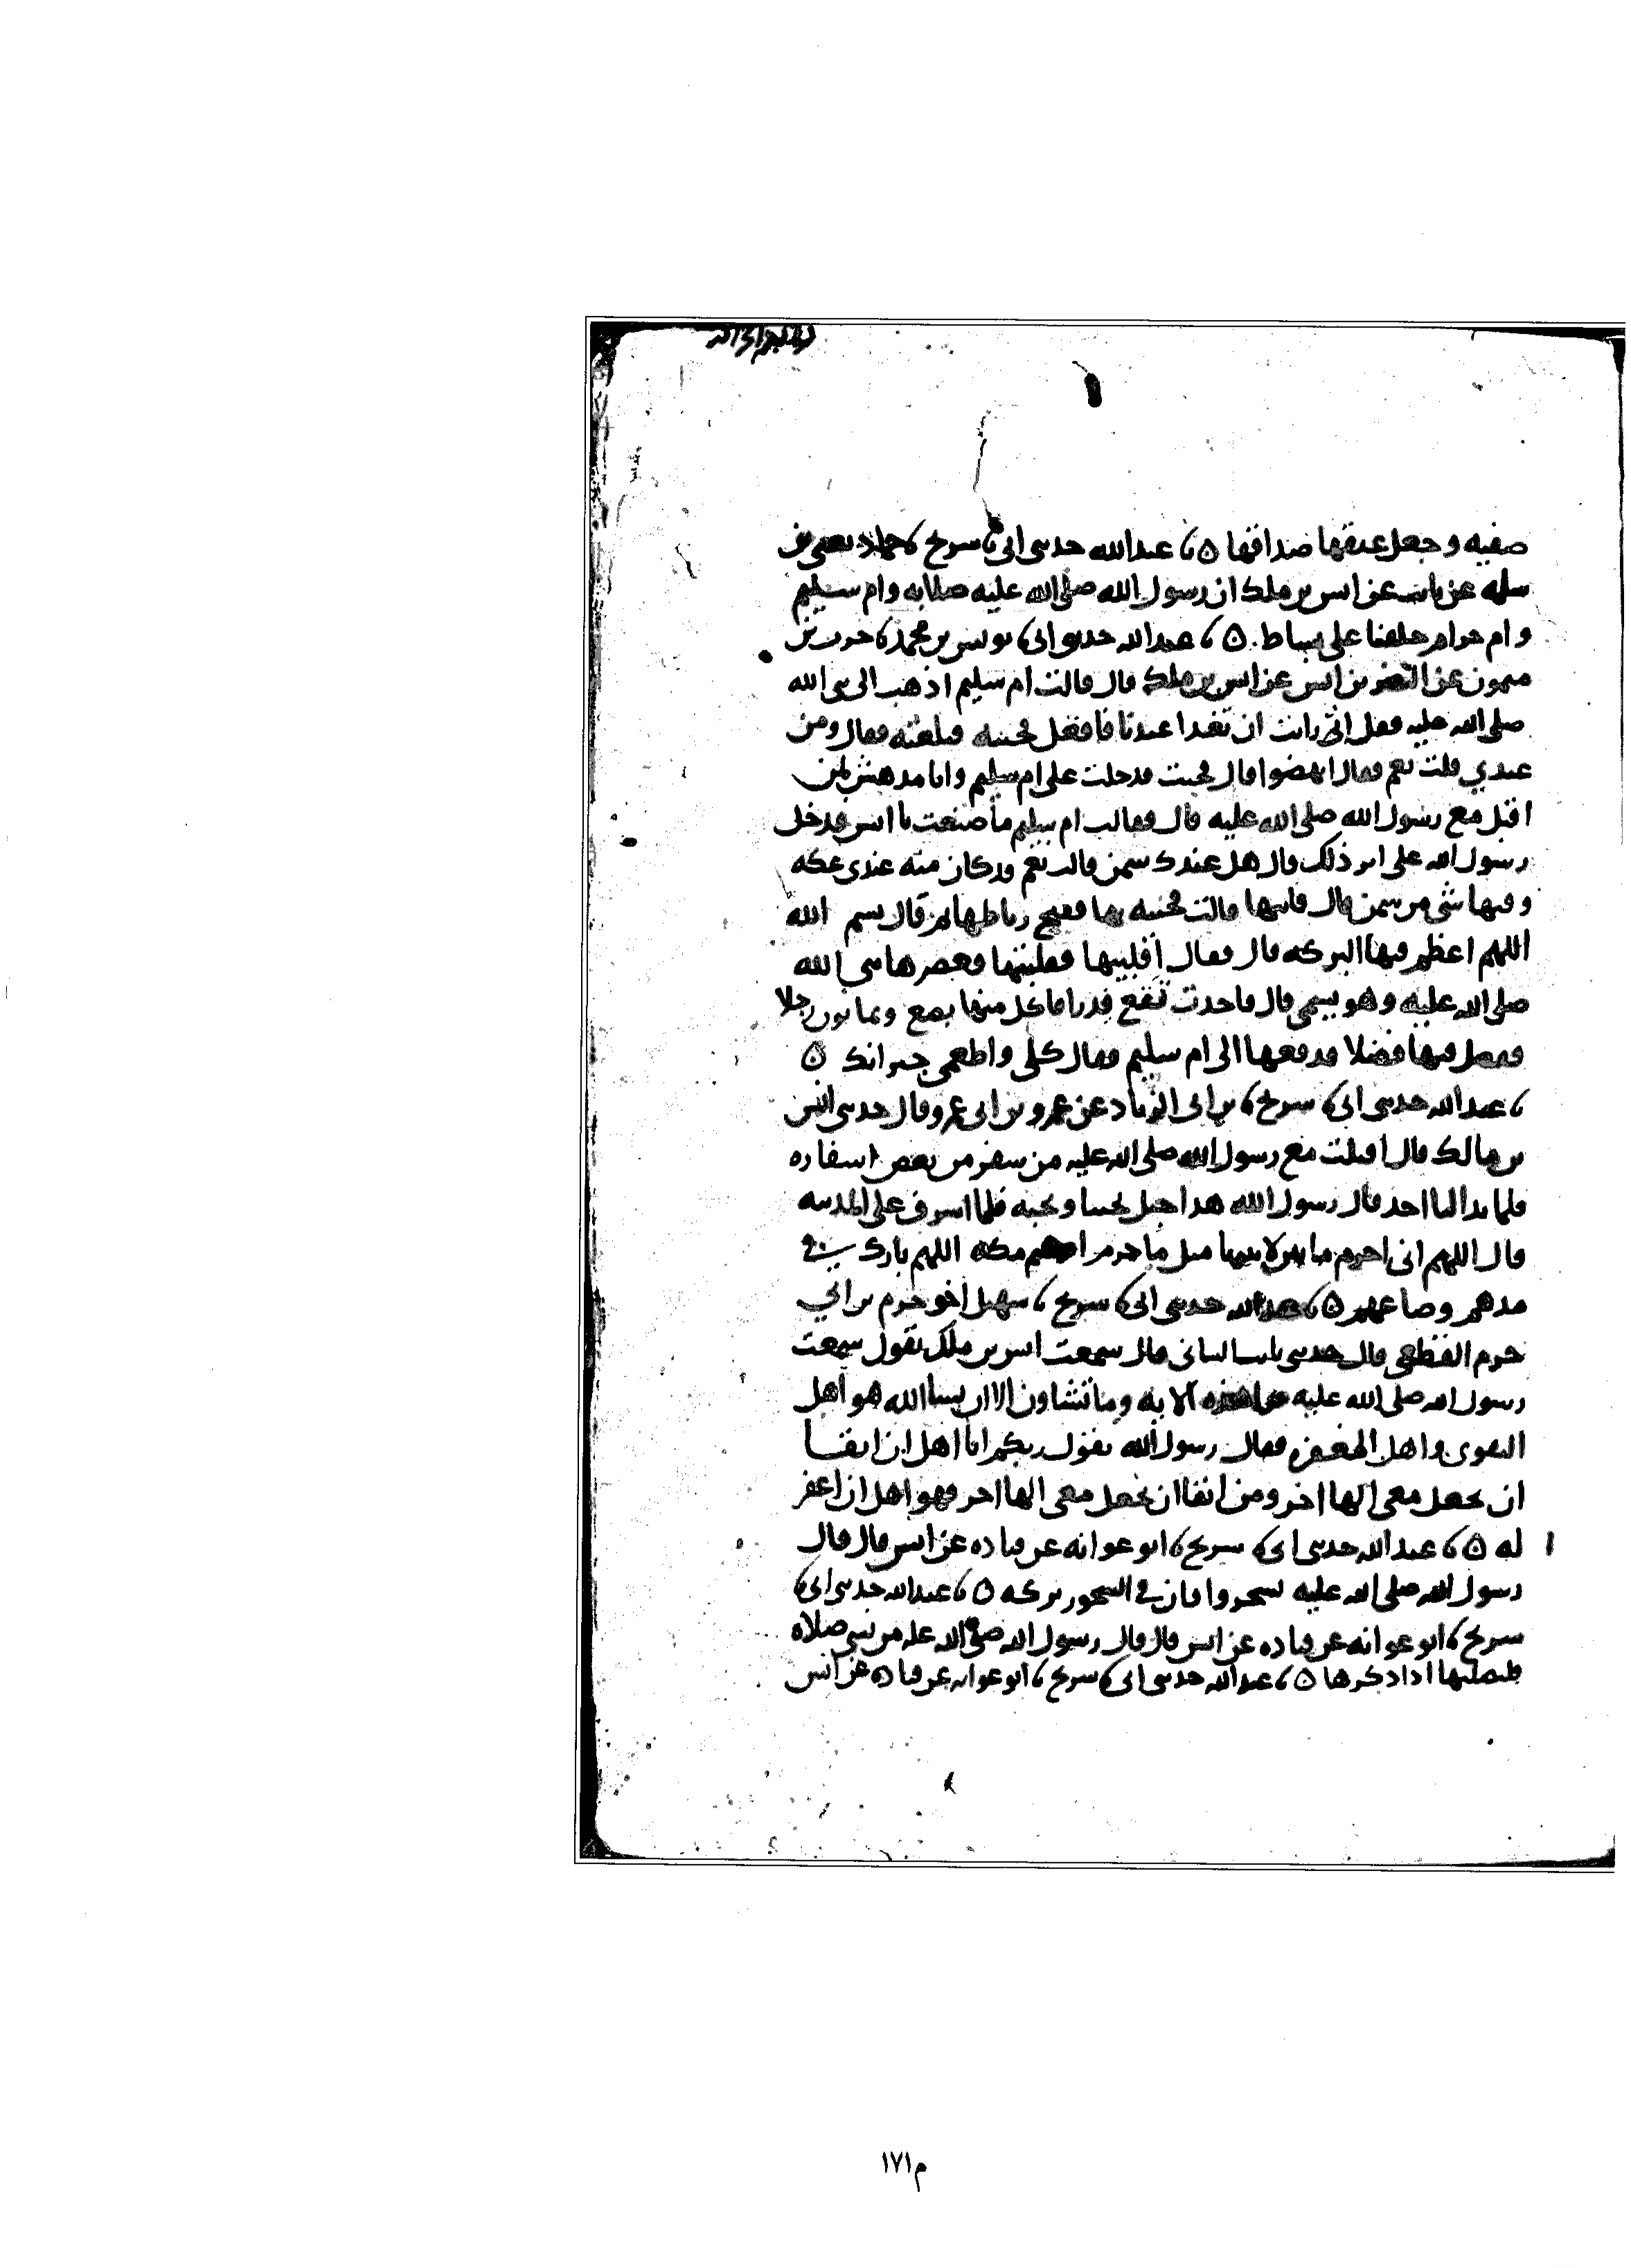 صفيه وجعل عتقها صداقها ه نا عبدالله حدثنى ابى نا سريج نا حماد يعنى بن
سلمه عن ثابت عن انس بن ملك ان رسول الله صلى الله عليه صلا به وام سليم
وام حرام خلفنا على بساط ه نا عبدالله حدثنى ابى نا يونس بن محمد نا حرب بن
ميمون عن النضر بن انس عن انس بن ملك قال قالت ام سليم اذهب الى نبى الله
صلى الله عليه فقل ان رايت ان تغدا عندنا فافعل فجئته فبلغته فقال ومن
عندي قلت نعم فقال انهضوا قال فجئت فدخلت على ام سليم وانا مدهش لمن
اقبل مع رسول الله صلى الله عليه قال فقالت ام سليم ما صنعت يا انس فدخل
رسول الله على اثر ذلك قال هل عندك سمن قالت نعم قد كان منه عندى عكه
وفيها شى من سمن قال فاتيها قالت فجئته بها ففتح رباطها ثم قال بسم الله
اللهم اعظم فيها البركه قال فقال اقلبيها فقلبتها فعصرها نبى الله
صلى الله عليه وهو يسمى قال فاخذت تقع قدرا فاكل منها بضع وثمانون رجلا
ففضل فيها فضلا فدفعها الى ام سليم فقال كلى واطعمى جيرانك ه
نا عبدالله حدثنى ابى نا سريج نا بن ابى الزناد عن عمرو بن ابى عمرو قال حدثنى انس
بن مالك قال اقبلت مع رسول الله صلى الله عليه من سفر من بعض اسفاره
فلما بدا لنا احد قال رسول الله هذا جبل يحبنا ونحبه فلما اشرف على المدينه
قال اللهم انى احرم ما بين لابتيها مثل ما حرم ابرهيم مكه اللهم بارك لهم فى
مدهم وصاعهم ه نا عبدالله حدثنى ابى نا سريج نا سهيل اخو حزم بن ابي
حزم القطعى قال حدثنى ثابت البنانى قال سمعت انس بن ملك يقول سمعت
رسول الله صلى الله عليه قرا هذه الايه وما تشاون الا ان يشا الله هو اهل
التقوى واهل المغفره فقال رسول الله يقول ربكم انا اهل ان اتقا
ان يجعل معى الها اخر ومن اتقا ان يجعل معى الها اخر فهو اهل ان اغفر
له ه نا عبدالله حدثنى ابى نا سريج نا ابو عوانه عن قتاده عن انس قال قال
رسول الله صلى الله عليه تسحروا فان فى السحور بركه ه نا عبدالله حدثنى ابى نا
سريج نا ابو عوانه عن قتاده عن انس قال قال رسول الله صلى الله عليه من نسى صلاه
فليصليها اذا ذكرها ه نا عبدالله حدثنى ابى نا سريج نا ابو عوانه عن قتاده عن انس
م١٧١